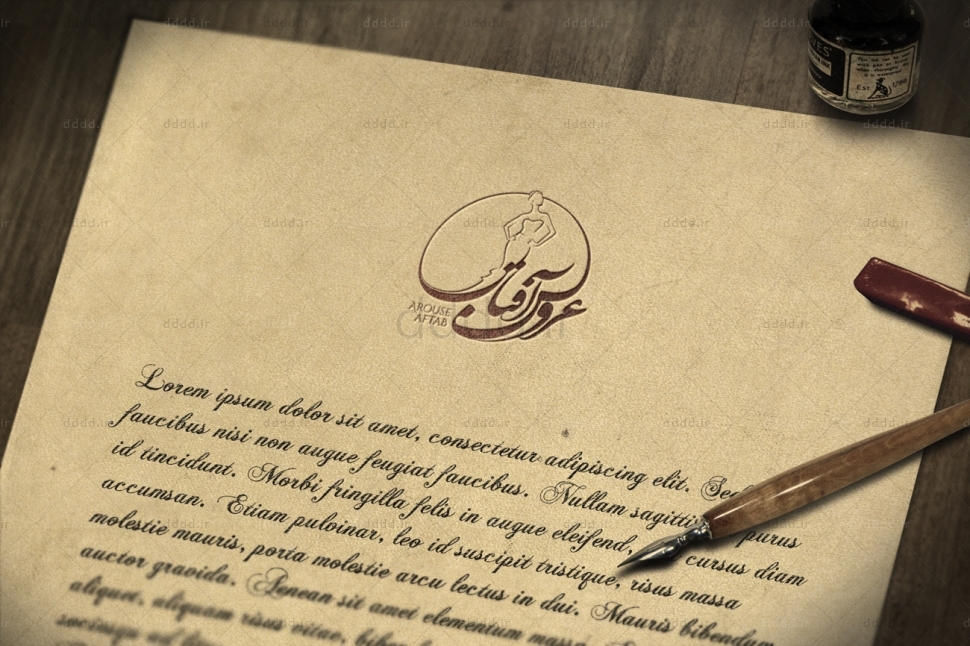 عروس آفتاب
AROUSE
AFTAB
Lorem ipsum dolor sit amet, consectetur adipiscing elit. Sed
faucibus nisi non augue feugiat faucibus. Nullam sagittis purus
id tincidunt. Morbi fringilla felis in augue eleifend, cursus diam
accumsan. Etiam pulvinar, leo id suscipit tristique, risus massa
molestie mauris, porta molestie arcu lectus in dui. Mauris bibendum
auctor gravida. Aenean sit amet elementum massa.
aliquet, aliquam risus vitae,
dddd.ir